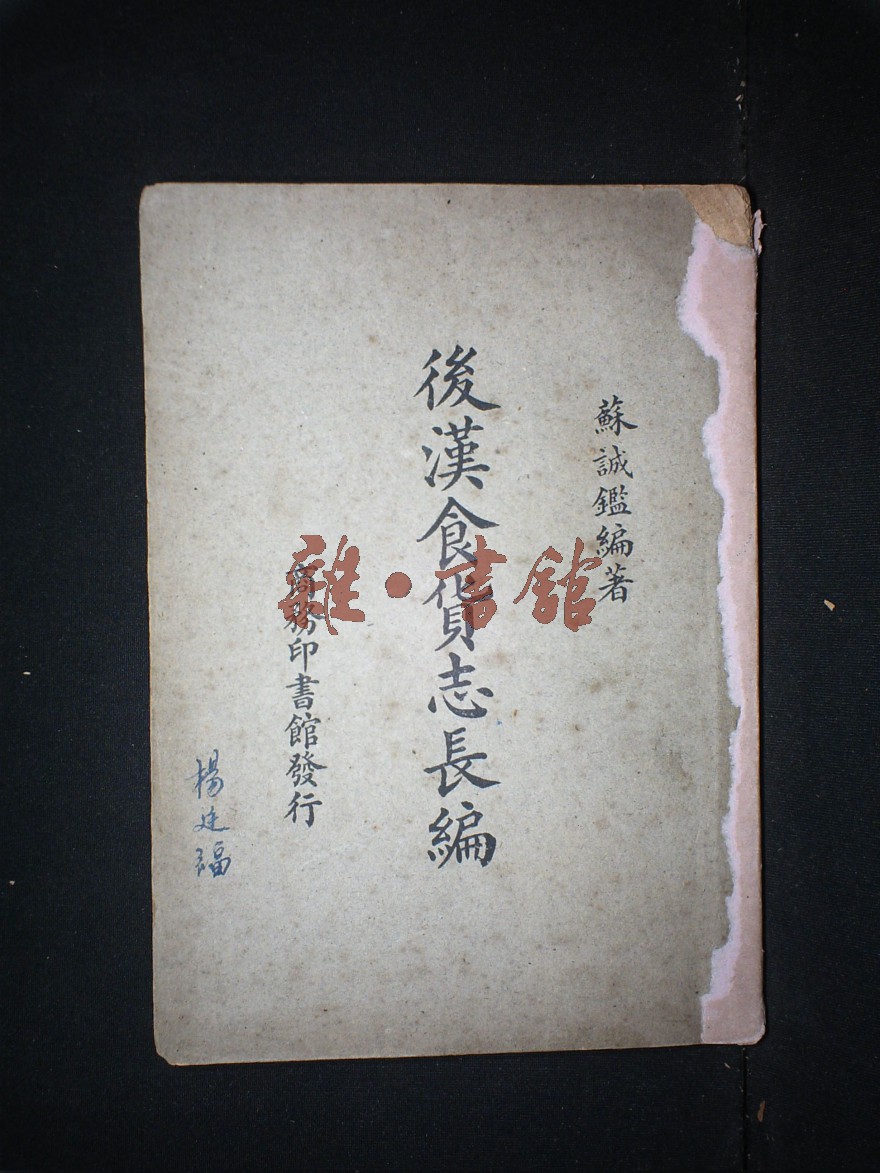 蘇誠鑑編著
後漢食貨志長編
商務印書館發行
楊廷福
雜·書館